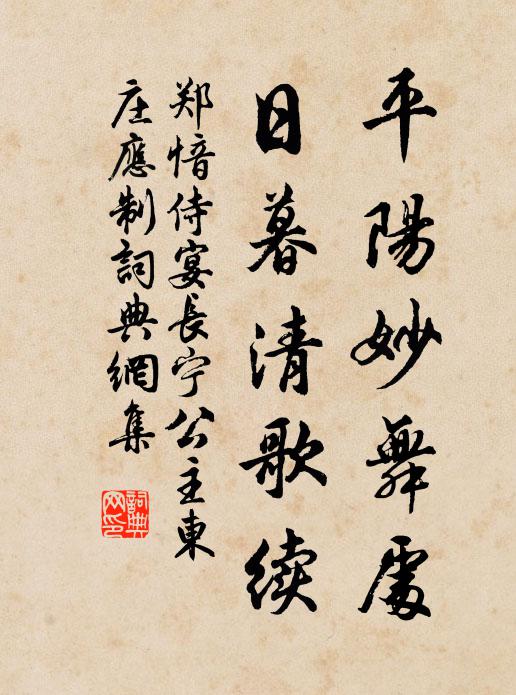 平陽妙舞處
日暮清歌续
郑愔侍宴長宁公主東
庄應制詞典網集
詞典网印